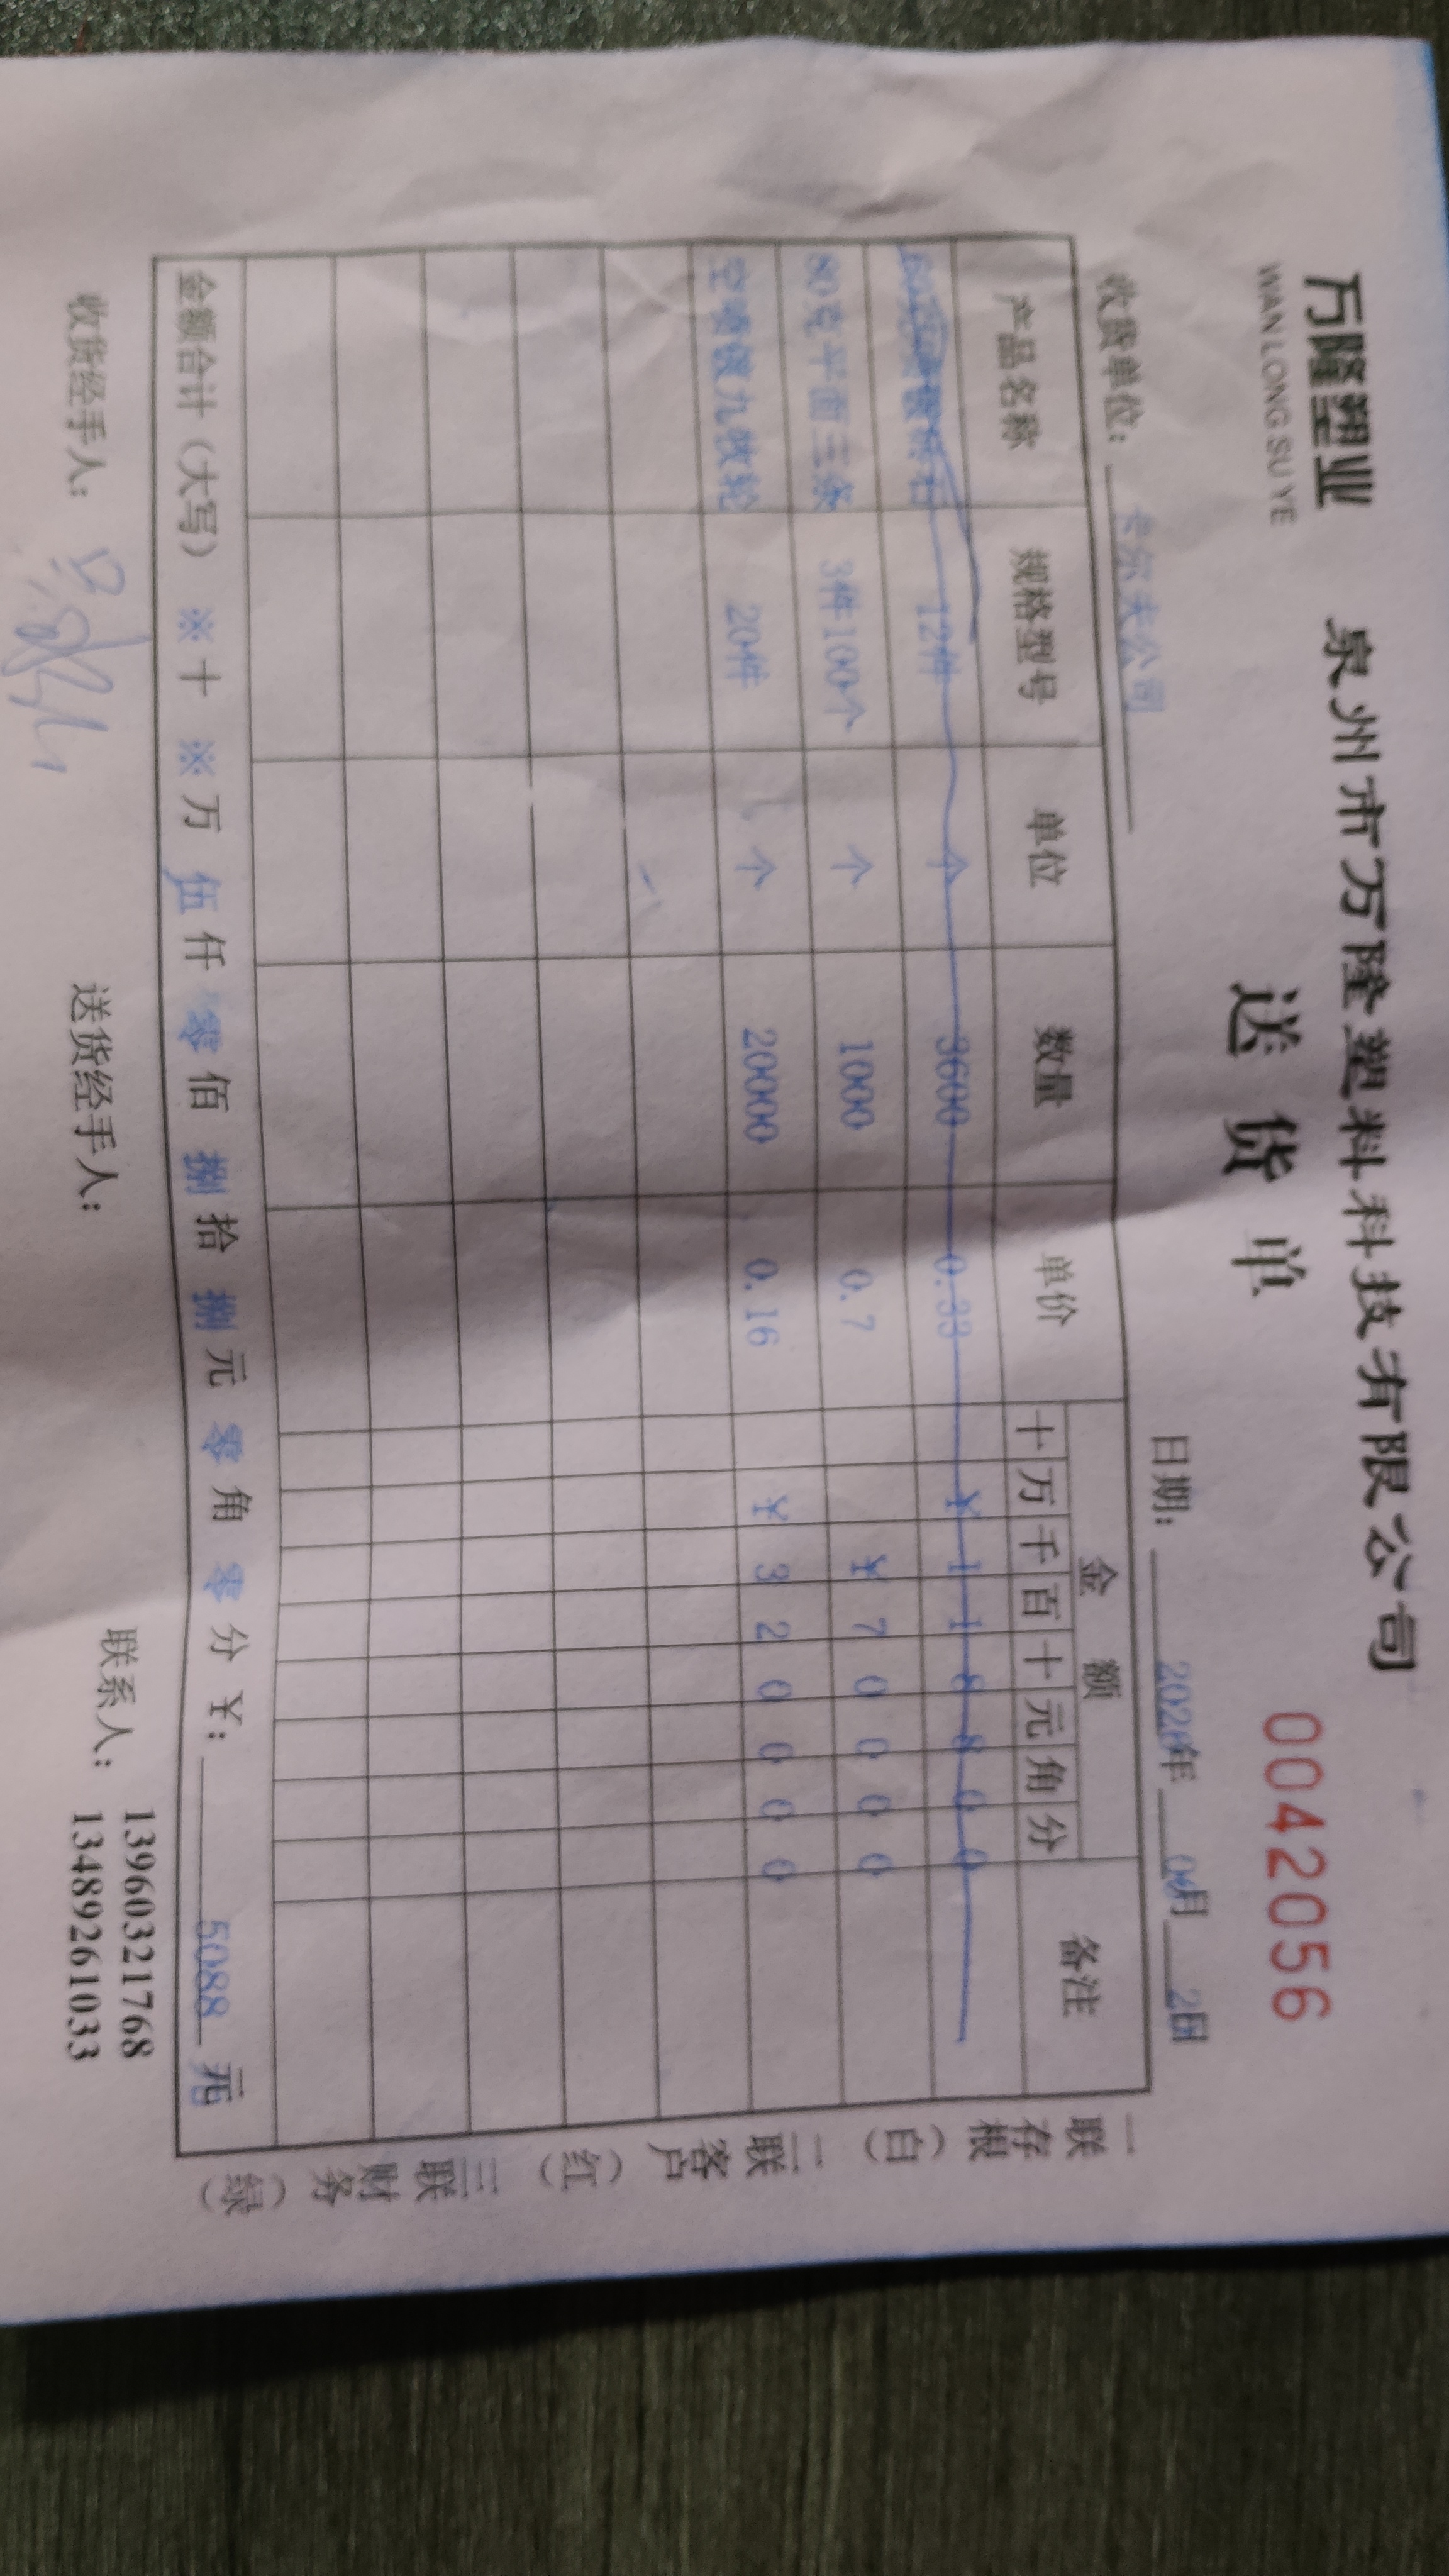 万隆塑业
WAN LONG SU YE
泉州市万隆塑料科技有限公司
送货单
0042056
收货单位: 卡尔夫公司
日期: 年 月 2日
产品名称 规格型号 单位 数量 单价 金额 备注
十 万 千 百 十 元 角 分
12件 个 3600 0.33 ¥ 1 1 8 8 0 0
80克平面三条 3件100个 个 1000 0.7 ¥ 7 0 0 0 0
20件 个 20000 0.16 ¥ 3 2 0 0 0 0
金额合计(大写) ※ 十 ※ 万 伍 仟 零 佰 捌 拾 捌 元 零 角 零 分 ¥: 5088 元
收货经手人:
送货经手人:
联系人: 13960321768
13489261033
一联存根(白) 二联客户(红) 三联财务(绿)